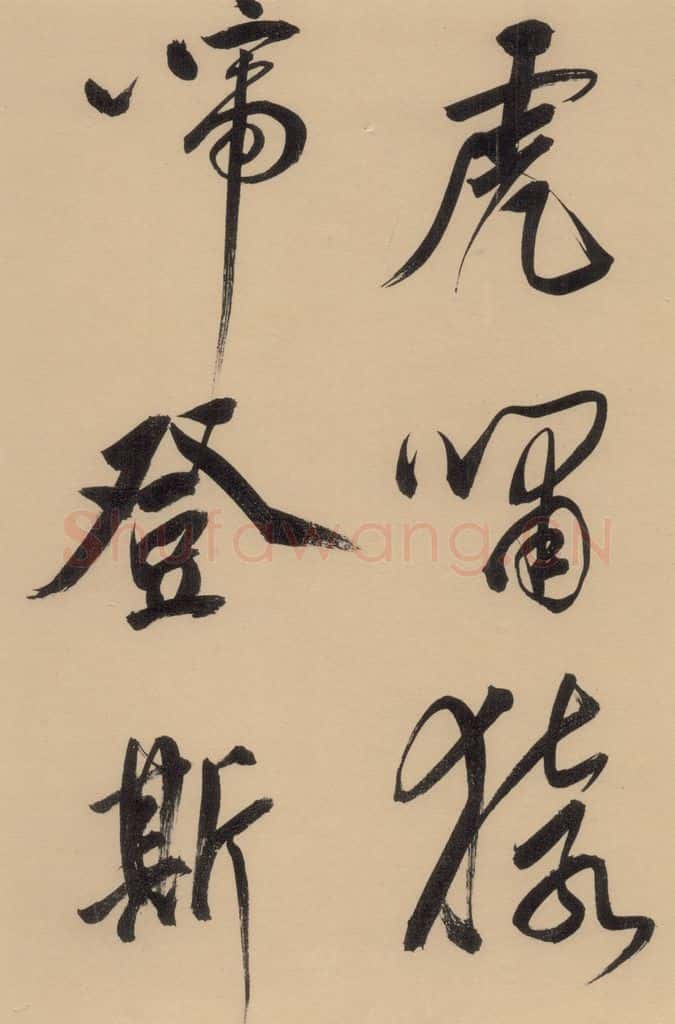 虎啸猿
啼登斯
Shufawang.CN